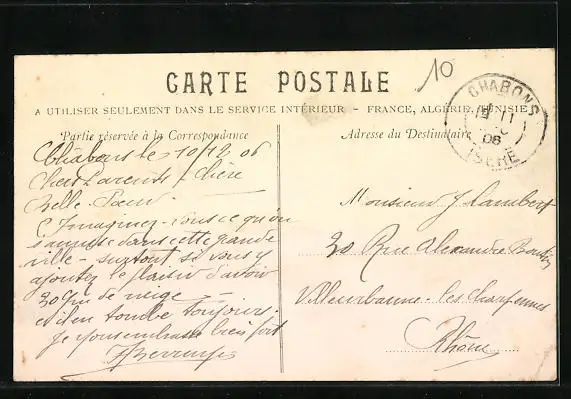 10
CARTE POSTALE
A UTILISER SEULEMENT DANS LE SERVICE INTÉRIEUR - FRANCE, ALGÉRIE, TUNISIE
Partie réservée à la Correspondance
Adresse du Destinataire
CHABONS
11
06
ISÈRE
Châbons le 10/12 06
Chers Parents, Chère
Belle-Sœur
Imaginez-vous ce qu'on
s'amuse dans cette grande
ville - surtout si vous y
ajoutez le plaisir d'avoir
20 de neige
et il en tombe toujours.
je vous embrasse bien fort
Monsieur J Lambert
20 Rue Alexandre Boutin
Villeurbanne-les Charpennes
Rhône